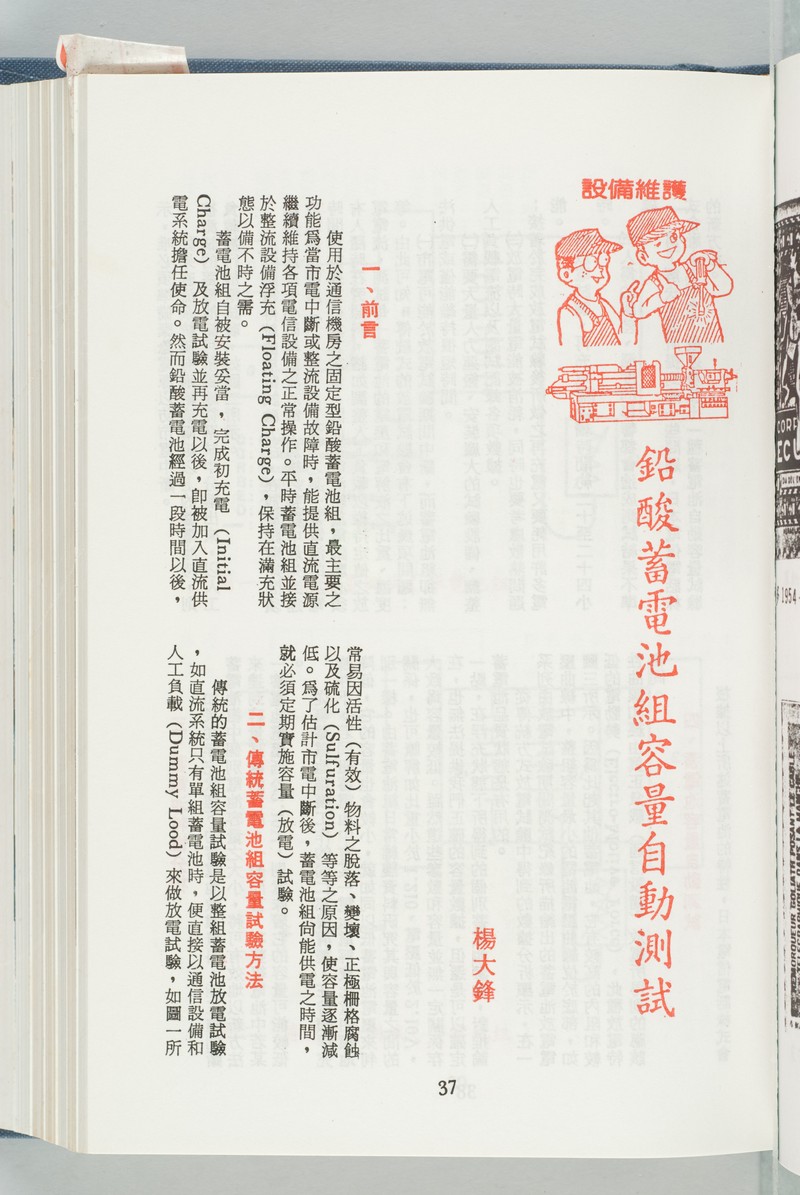 設備維護
鉛酸蓄電池組容量自動測試
楊大鋒
一、前言
使用於通信機房之固定型鉛酸蓄電池組，最主要之
功能爲當市電中斷或整流設備故障時，能提供直流電源
繼續維持各項電信設備之正常操作。平時蓄電池組並接
於整流設備浮充（Floating Charge），保持在滿充狀
態以備不時之需。
蓄電池組自被安裝妥當，完成初充電（Initial
Charge）及放電試驗並再充電以後，即被加入直流供
電系統擔任使命。然而鉛酸蓄電池經過一段時間以後，
常易因活性（有效）物料之脫落、變壞、正極柵格腐蝕
以及硫化（Sulfuration）等等之原因，使容量逐漸減
低。爲了估計市電中斷後，蓄電池組尙能供電之時間，
就必須定期實施容量（放電）試驗。
二、傳統蓄電池組容量試驗方法
傳統的蓄電池組容量試驗是以整組蓄電池放電試驗
，如直流系統只有單組蓄電池時，便直接以通信設備和
人工負載（Dummy Lood）來做放電試驗，如圖一所
37
CORP
ECU
1954